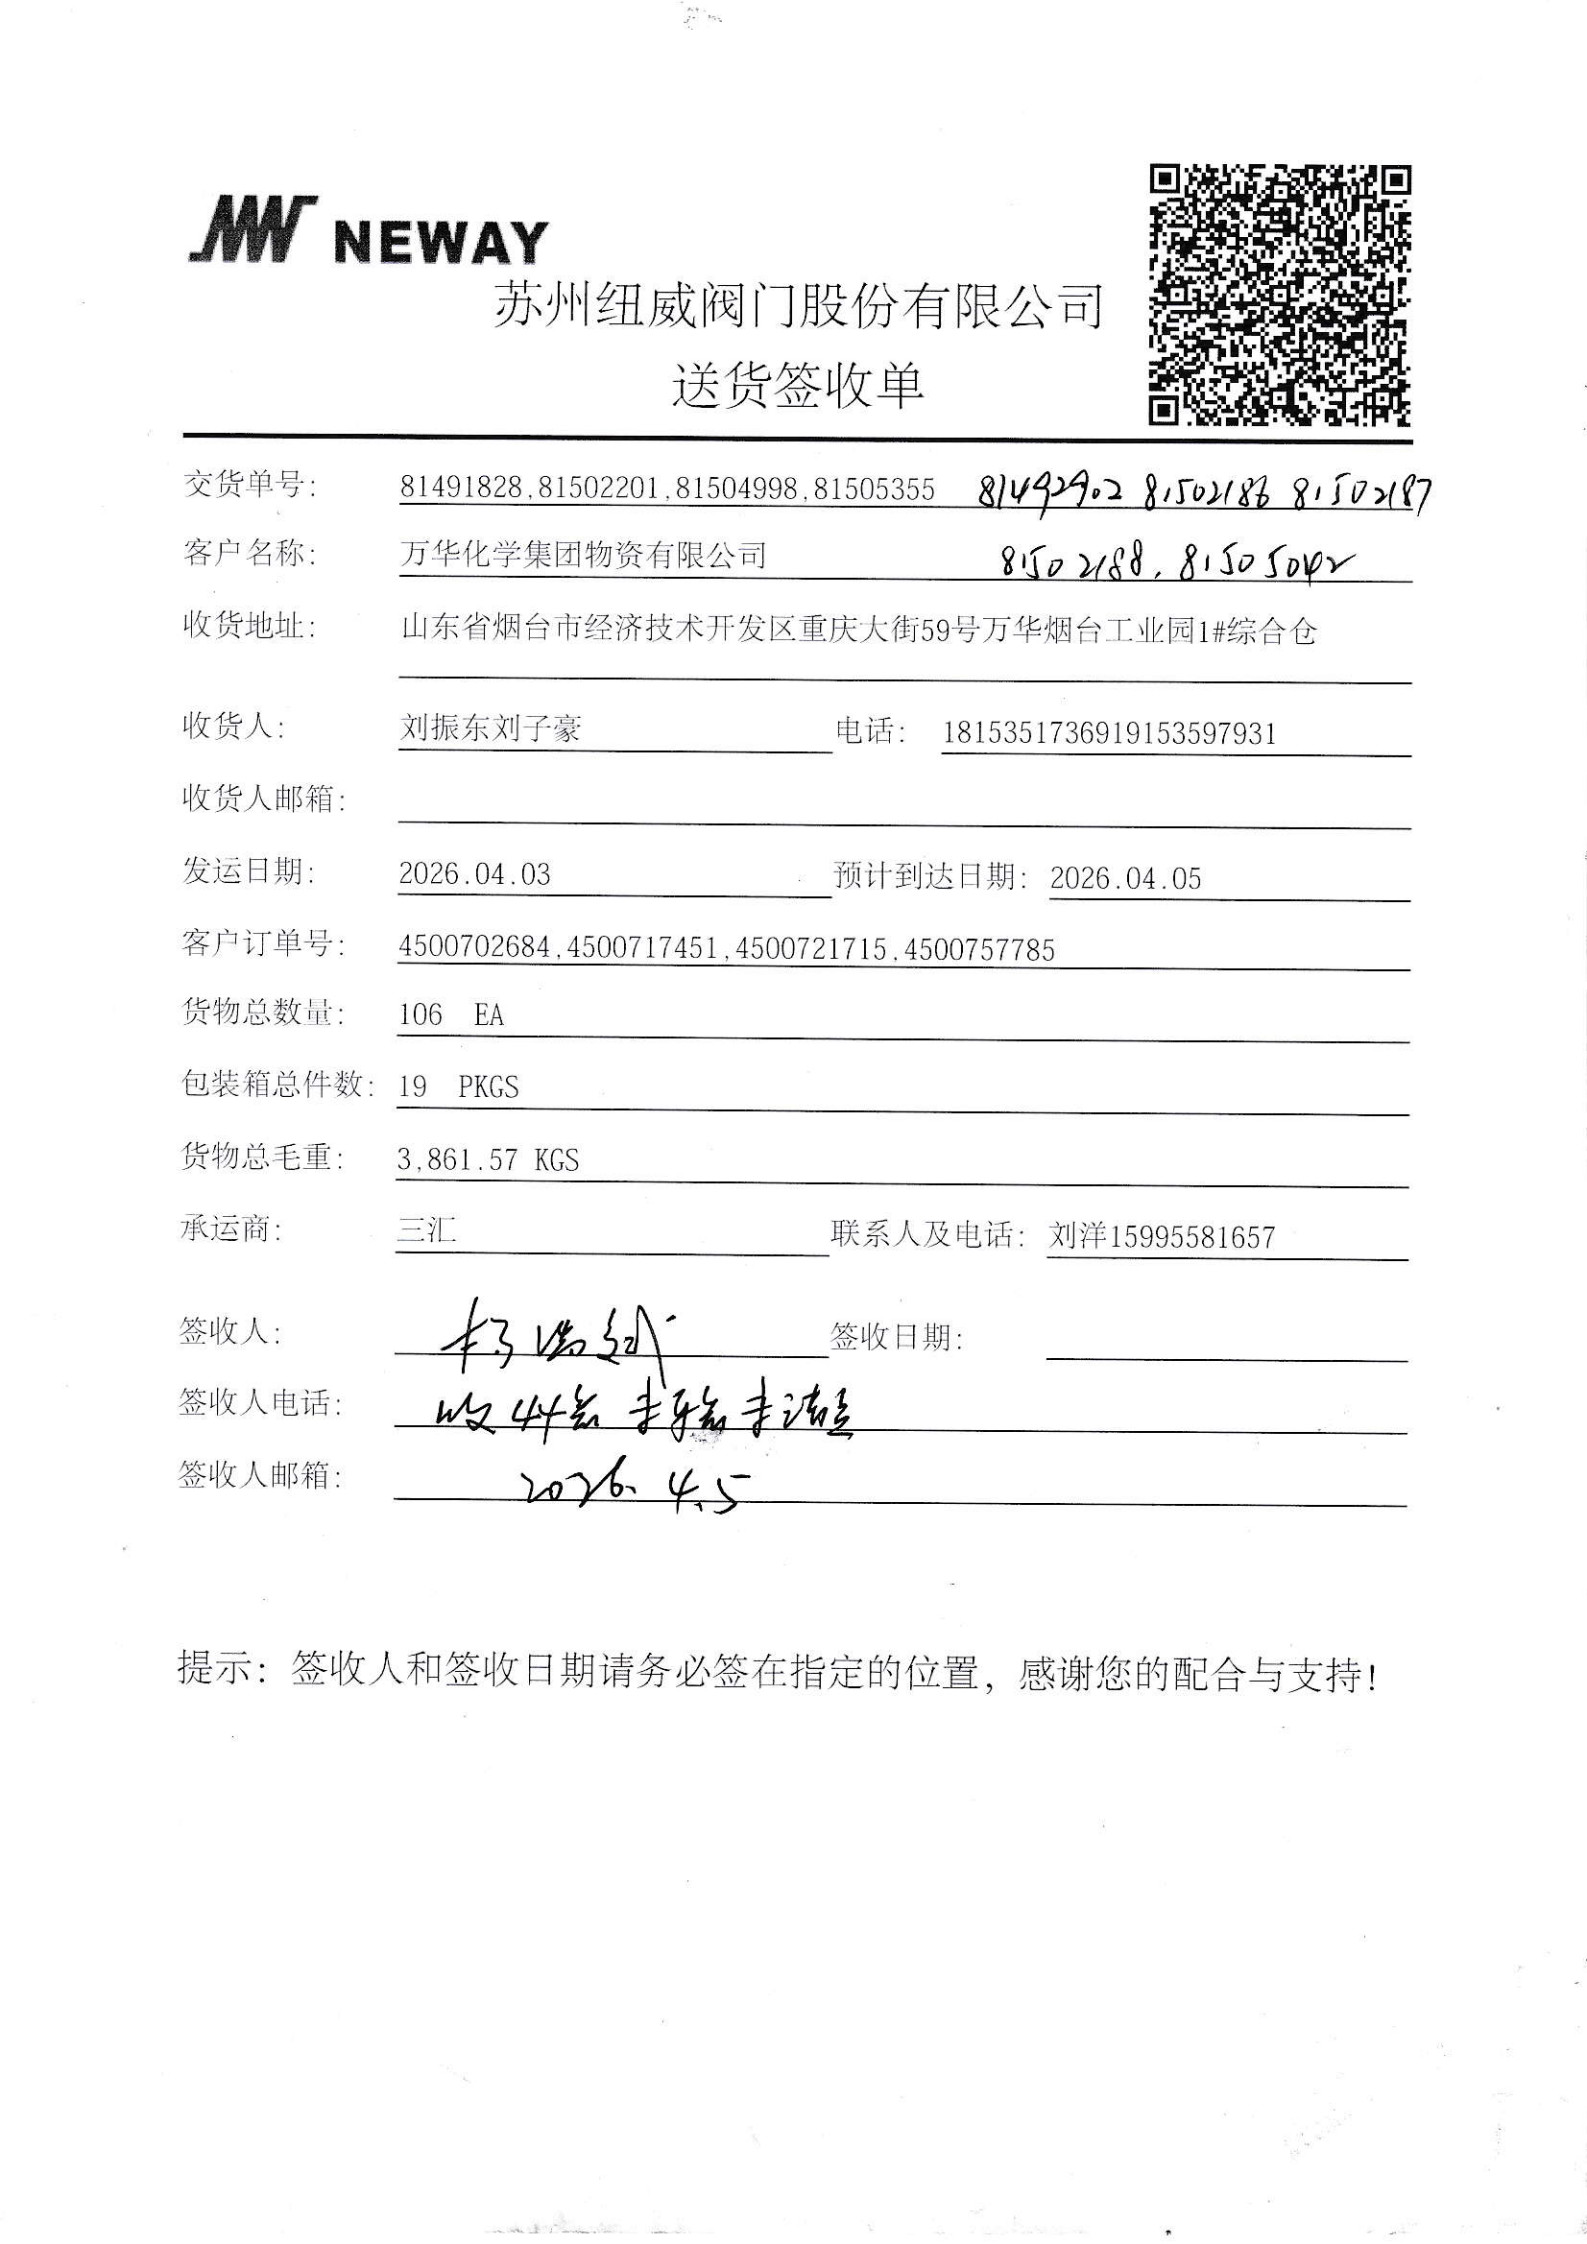 NEWAY
苏州纽威阀门股份有限公司
送货签收单
交货单号: 81491828,81502201,81504998,81505355 81492902 81502186 81502187
客户名称: 万华化学集团物资有限公司 81502188. 81505042
收货地址: 山东省烟台市经济技术开发区重庆大街59号万华烟台工业园1#综合仓
收货人: 刘振东刘子豪 电话: 1815351736919153597931
收货人邮箱:
发运日期: 2026.04.03 预计到达日期: 2026.04.05
客户订单号: 4500702684,4500717451,4500721715,4500757785
货物总数量: 106 EA
包装箱总件数: 19 PKGS
货物总毛重: 3,861.57 KGS
承运商: 三汇 联系人及电话: 刘洋15995581657
签收人: 杨 签收日期:
签收人电话: 收44 未 未清点
签收人邮箱: 2026. 4.5
提示: 签收人和签收日期请务必签在指定的位置, 感谢您的配合与支持!